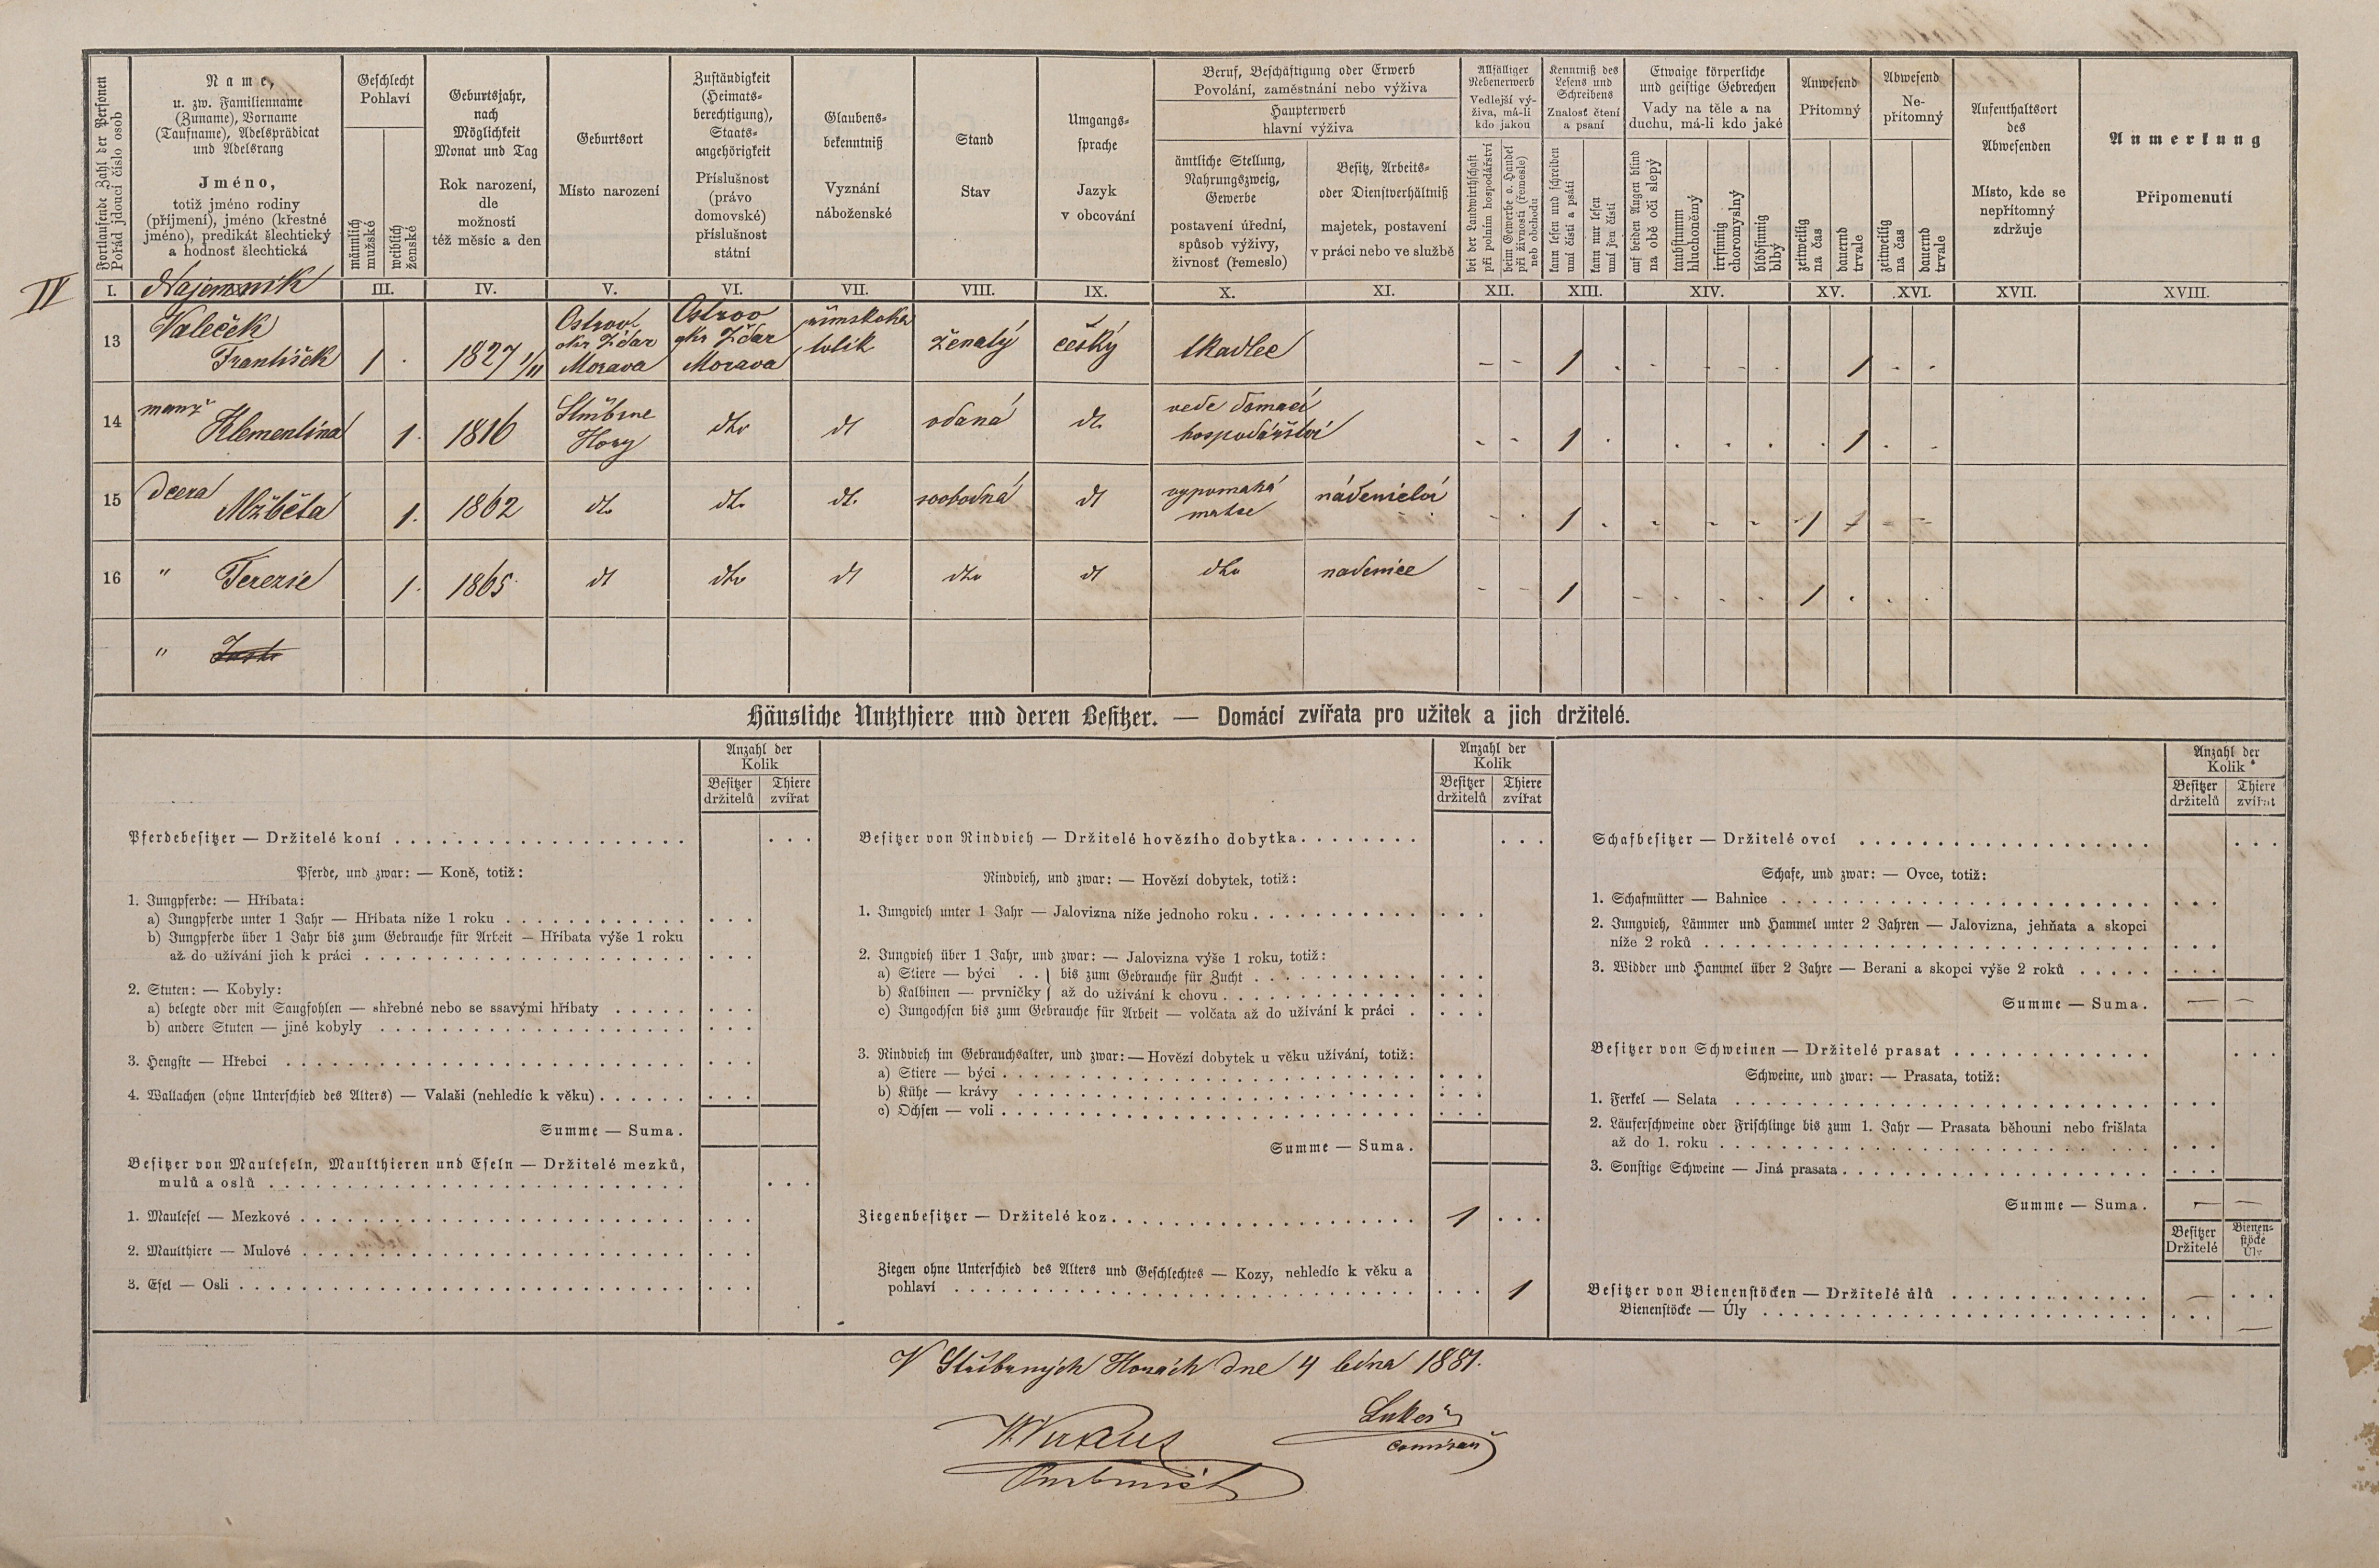 Fortlaufende Zahl der Personen
Pořád jdoucí číslo osob
Name,
u. zw. Familienname
(Zuname), Vorname
(Taufname), Adelsprädicat
und Adelsrang
Jméno,
totiž jméno rodiny
(příjmení), jméno (křestné
jméno), predikát šlechtický
a hodnosť šlechtická
Geschlecht
Pohlaví
männlich
mužské
weiblich
ženské
Geburtsjahr,
nach
Möglichkeit
Monat und Tag
Rok narození,
dle
možnosti
též měsíc a den
Geburtsort
Místo narození
Zuständigkeit
(Heimats-
berechtigung),
Staats-
angehörigkeit
Příslušnost
(právo
domovské)
příslušnost
státní
Glaubens-
bekenntniß
Vyznání
náboženské
Stand
Stav
Umgangs-
sprache
Jazyk
v obcování
Beruf, Beschäftigung oder Erwerb
Povolání, zaměstnání nebo výživa
Haupterwerb
hlavní výživa
ämtliche Stellung,
Nahrungszweig,
Gewerbe
postavení úřední,
spůsob výživy,
živnosť (řemeslo)
Besitz, Arbeits-
oder Dienstverhältniß
majetek, postavení
v práci nebo ve službě
Allfälliger
Nebenerwerb
Vedlejší vý-
živa, má-li
kdo jakou
bei der Landwirthschaft
při polním hospodářství
beim Gewerbe o. Handel
při živnosti (řemesle)
neb obchodu
Kenntniß des
Lesens und
Schreibens
Znalosť čtení
a psaní
kann lesen und schreiben
umí čísti a psáti
kann nur lesen
umí jen čísti
Etwaige körperliche
und geistige Gebrechen
Vady na těle a na
duchu, má-li kdo jaké
auf beiden Augen blind
na obě oči slepý
taubstumm
hluchoněmý
irrsinnig
choromyslný
blödsinnig
blbý
Anwesend
Přítomný
zeitweilig
na čas
dauernd
trvale
Abwesend
Ne-
přítomný
zeitweilig
na čas
dauernd
trvale
Aufenthaltsort
des
Abwesenden
Místo, kde se
nepřítomný
zdržuje
Anmerkung
Připomenutí
IV Najemník
I. III. IV. V. VI. VII. VIII. IX. X. XI. XII. XIII. XIV. XV. XVI. XVII. XVIII.
13 Valeček František 1 1827 1/11 Ostrov okr Žďar Morava Ostrov okr Žďar Morava římskokatolík ženatý český tkadlec 1 1
14 manž Klementina 1 1816 Stříbrne Hory dto dt vdaná dt. vede domací hospodářství 1 1
15 dcera Alžběta 1 1862 dt. dt. dt. svobodná dt vypomahá matce nádenictví 1 1
16 " Terezie 1 1865 dt dto dt dto dt dto nadenice 1 1
"
Häusliche Nutzthiere und deren Besitzer. — Domácí zvířata pro užitek a jich držitelé.
Anzahl der
Kolik
Besitzer Thiere
držitelů zvířat
Pferdebesitzer — Držitelé koní
Pferde, und zwar: — Koně, totiž:
1. Jungpferde: — Hříbata:
a) Jungpferde unter 1 Jahr — Hříbata níže 1 roku
b) Jungpferde über 1 Jahr bis zum Gebrauche für Arbeit — Hříbata výše 1 roku
až do užívání jich k práci
2. Stuten: — Kobyly:
a) belegte oder mit Saugfohlen — shřebné nebo se ssavými hříbaty
b) andere Stuten — jiné kobyly
3. Hengste — Hřebci
4. Wallachen (ohne Unterschied des Alters) — Valaši (nehledíc k věku)
Summe — Suma.
Besitzer von Mauleseln, Maulthieren und Eseln — Držitelé mezků,
mulů a oslů
1. Maulesel — Mezkové
2. Maulthiere — Mulové
3. Esel — Osli
Anzahl der
Kolik
Besitzer Thiere
držitelů zvířat
Besitzer von Rindvieh — Držitelé hovězího dobytka
Rindvieh, und zwar: — Hovězí dobytek, totiž:
1. Jungvieh unter 1 Jahr — Jalovizna níže jednoho roku
2. Jungvieh über 1 Jahr, und zwar: — Jalovizna výše 1 roku, totiž:
a) Stiere — býci . . } bis zum Gebrauche für Zucht
b) Kalbinen — prvničky } až do užívání k chovu
c) Jungochsen bis zum Gebrauche für Arbeit — volčata až do užívání k práci
3. Rindvieh im Gebrauchsalter, und zwar: — Hovězí dobytek u věku užívání, totiž:
a) Stiere — býci
b) Kühe — krávy
c) Ochsen — voli
Summe — Suma.
Ziegenbesitzer — Držitelé koz 1
Ziegen ohne Unterschied des Alters und Geschlechtes — Kozy, nehledíc k věku a
pohlaví 1
Anzahl der
Kolik
Besitzer Thiere
držitelů zvířat
Schafbesitzer — Držitelé ovcí
Schafe, und zwar: — Ovce, totiž:
1. Schafmütter — Bahnice
2. Jungvieh, Lämmer und Hammel unter 2 Jahren — Jalovizna, jehňata a skopci
níže 2 roků
3. Widder und Hammel über 2 Jahre — Berani a skopci výše 2 roků
Summe — Suma. — —
Besitzer von Schweinen — Držitelé prasat
Schweine, und zwar: — Prasata, totiž:
1. Ferkel — Selata
2. Läuferschweine oder Frischlinge bis zum 1. Jahr — Prasata běhouni nebo frišlata
až do 1. roku
3. Sonstige Schweine — Jiná prasata
Summe — Suma. — —
Besitzer Bienen-
Držitelé stöcke
Úly
Besitzer von Bienenstöcken — Držitelé úlů —
Bienenstöcke — Úly —
V Stříbrných Horách dne 4 ledna 1881.
Lukeš
comisař